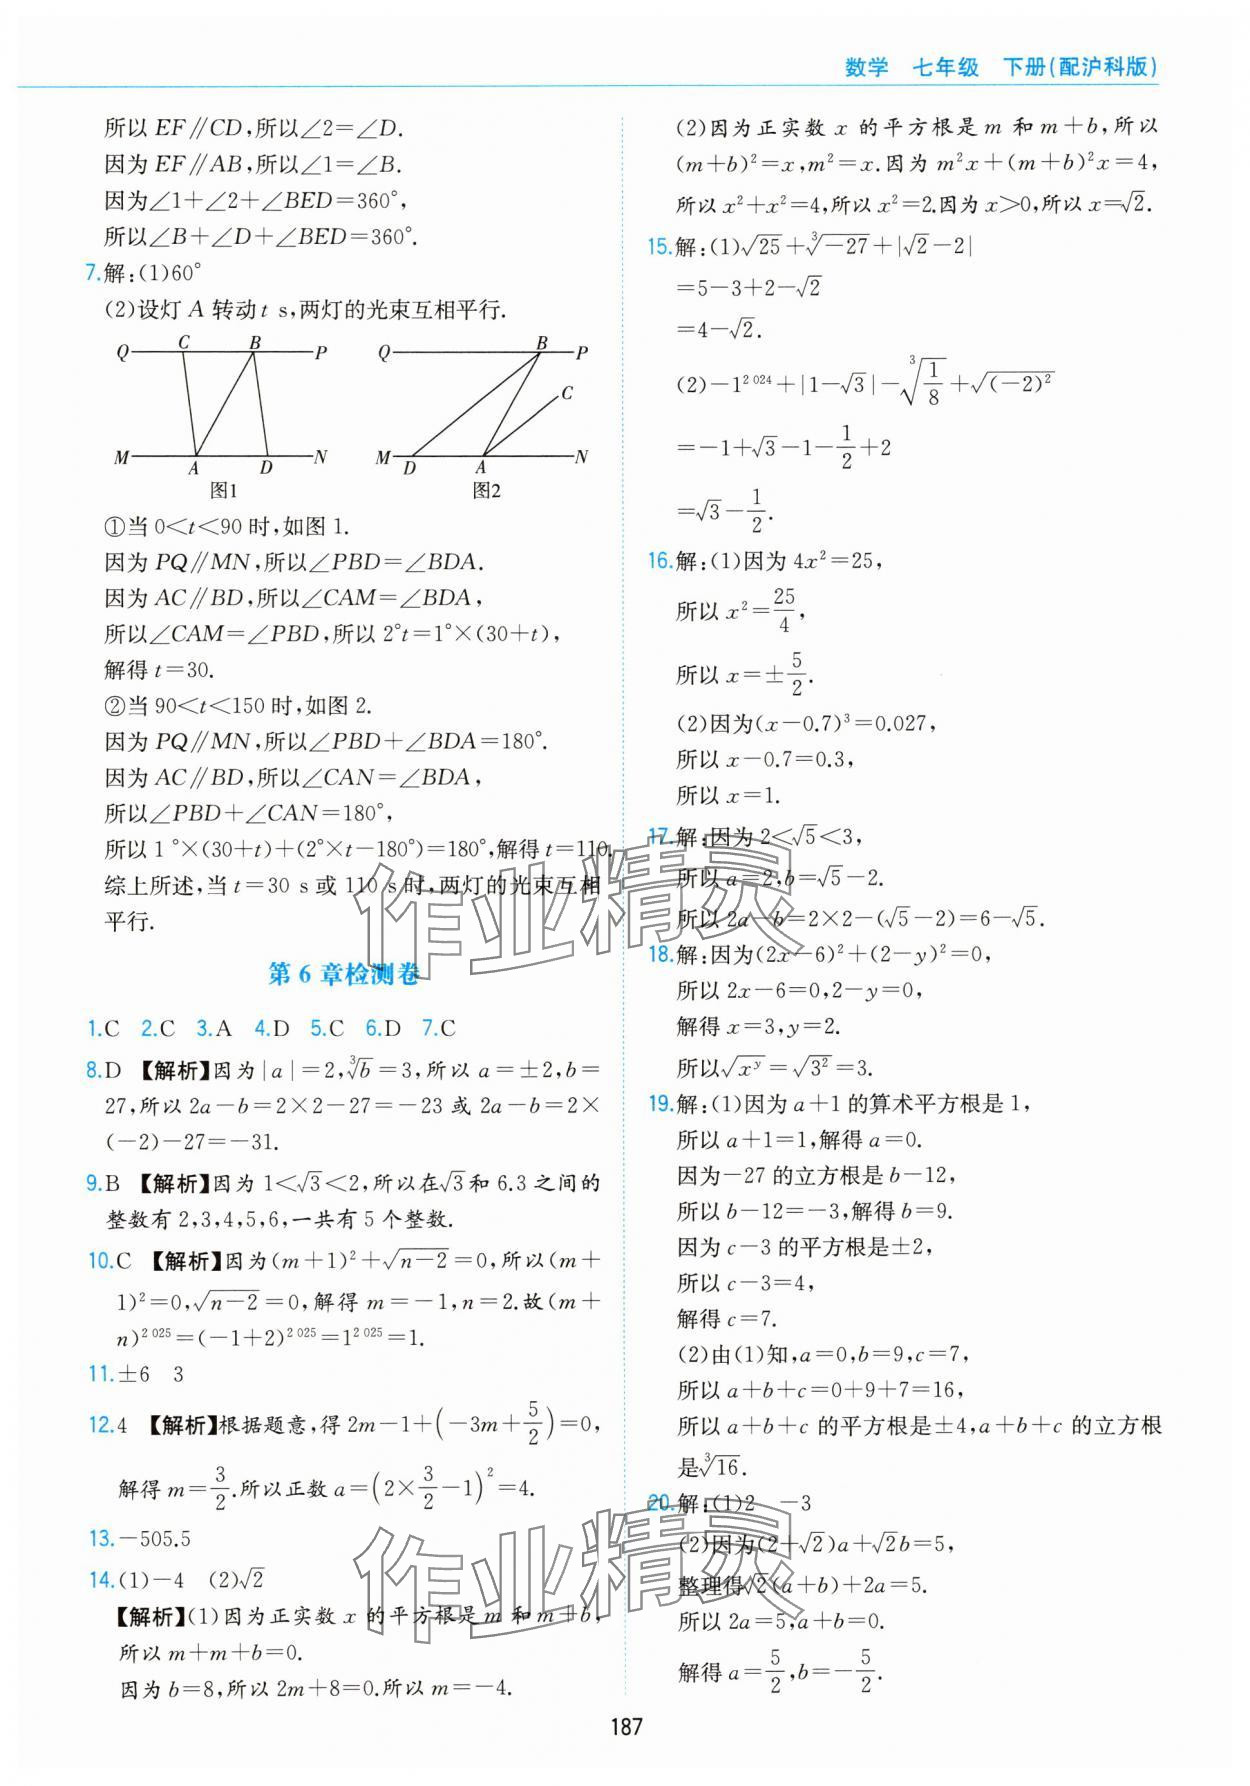 数学 七年级 下册(配沪科版)
所以 EF∥CD,所以∠2=∠D.
因为 EF∥AB,所以∠1=∠B.
因为∠1+∠2+∠BED=360°,
所以∠B+∠D+∠BED=360°.
7.解:(1)60°
(2)设灯 A 转动 t s,两灯的光束互相平行.
Q C B P
M A D N
图1
Q B P
C
M D A N
图2
①当 0<t<90 时,如图 1.
因为 PQ∥MN,所以∠PBD=∠BDA.
因为 AC∥BD,所以∠CAM=∠BDA,
所以∠CAM=∠PBD,所以 2°t=1°×(30+t),
解得 t=30.
②当 90<t<150 时,如图 2.
因为 PQ∥MN,所以∠PBD+∠BDA=180°.
因为 AC∥BD,所以∠CAN=∠BDA,
所以∠PBD+∠CAN=180°,
所以 1°×(30+t)+(2°×t-180°)=180°,解得 t=110.
综上所述,当 t=30 s 或 110 s 时,两灯的光束互相
平行.
第 6 章检测卷
1.C 2.C 3.A 4.D 5.C 6.D 7.C
8.D 【解析】因为|a|=2,∛b=3,所以 a=±2,b=
27,所以 2a-b=2×2-27=-23 或 2a-b=2×
(-2)-27=-31.
9.B 【解析】因为 1<√3<2,所以在√3和 6.3 之间的
整数有 2,3,4,5,6,一共有 5 个整数.
10.C 【解析】因为(m+1)²+√(n-2)=0,所以(m+
1)²=0,√(n-2)=0,解得 m=-1,n=2.故(m+
n)²⁰²⁵=(-1+2)²⁰²⁵=1²⁰²⁵=1.
11.±6 3
12.4 【解析】根据题意,得 2m-1+(-3m+5/2)=0,
解得 m=3/2.所以正数 a=(2×3/2-1)²=4.
13.-505.5
14.(1)-4 (2)√2
【解析】(1)因为正实数 x 的平方根是 m 和 m+b,
所以 m+m+b=0.
因为 b=8,所以 2m+8=0.所以 m=-4.
(2)因为正实数 x 的平方根是 m 和 m+b,所以
(m+b)²=x,m²=x.因为 m²x+(m+b)²x=4,
所以 x²+x²=4,所以 x²=2.因为 x>0,所以 x=√2.
15.解:(1)√25+∛-27+|√2-2|
=5-3+2-√2
=4-√2.
(2)-1²⁰²⁴+|1-√3|-∛(1/8)+√((-2)²)
=-1+√3-1-1/2+2
=√3-1/2.
16.解:(1)因为 4x²=25,
所以 x²=25/4,
所以 x=±5/2.
(2)因为(x-0.7)³=0.027,
所以 x-0.7=0.3,
所以 x=1.
17.解:因为 2<√5<3,
所以 a=2,b=√5-2.
所以 2a-b=2×2-(√5-2)=6-√5.
18.解:因为(2x-6)²+(2-y)²=0,
所以 2x-6=0,2-y=0,
解得 x=3,y=2.
所以√(xʸ)=√(3²)=3.
19.解:(1)因为 a+1 的算术平方根是 1,
所以 a+1=1,解得 a=0.
因为-27 的立方根是 b-12,
所以 b-12=-3,解得 b=9.
因为 c-3 的平方根是±2,
所以 c-3=4,
解得 c=7.
(2)由(1)知,a=0,b=9,c=7,
所以 a+b+c=0+9+7=16,
所以 a+b+c 的平方根是±4,a+b+c 的立方根
是∛16.
20.解:(1)2 -3
(2)因为(2+√2)a+√2b=5,
整理得√2(a+b)+2a=5.
所以 2a=5,a+b=0.
解得 a=5/2,b=-5/2.
作业精灵
作业精灵
187